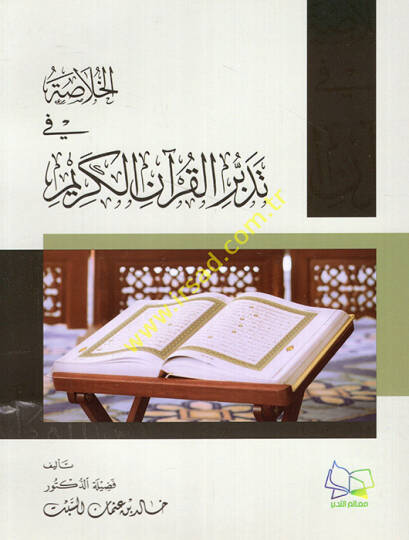 الخلاصة
في
تدبر القرآن الكريم
www.irsad.com.tr
تأليف
فضيلة الدكتور
خالد بن عثمان السبت
معالم التدبر